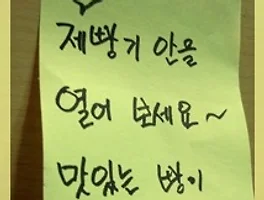 제빵기 안을
열어 보세요~
맛있는 빵이